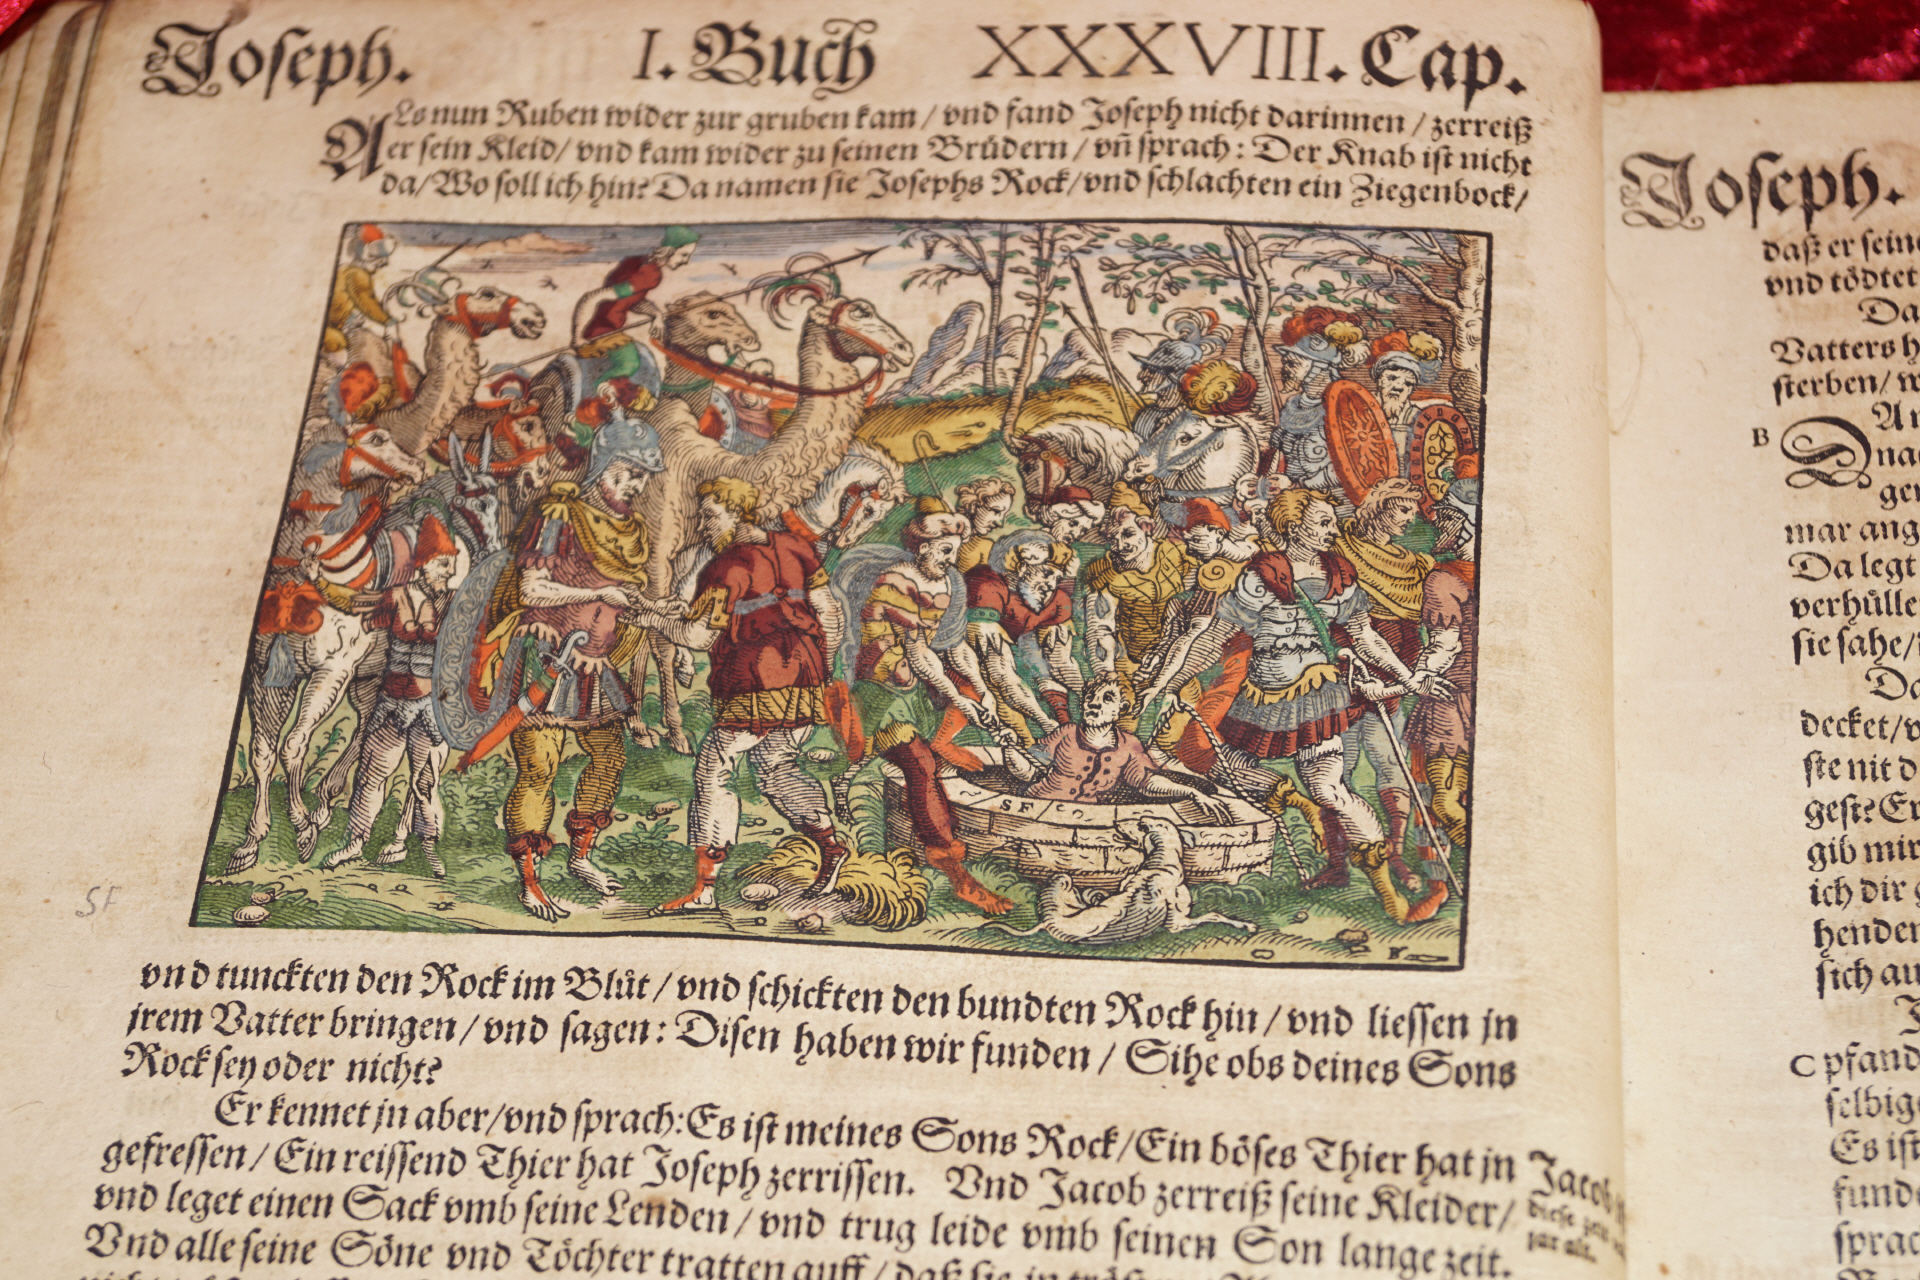 Joseph. I. Buch XXXVIII. Cap.
Als nun Ruben wider zur gruben kam / vnd fand Joseph nicht darinnen / zerreiß
er sein Kleid / vnd kam wider zu seinen Brüdern / vñ sprach: Der Knab ist nicht
da / Wo soll ich hin? Da namen sie Josephs Rock / vnd schlachten ein Ziegenbock /
SF
SF
vnd tunckten den Rock im Blůt / vnd schickten den bundten Rock hin / vnd liessen jn
jrem Vatter bringen / vnd sagen: Disen haben wir funden / Sihe obs deines Sons
Rock sey oder nicht?
Er kennet jn aber / vnd sprach: Es ist meines Sons Rock / Ein böses Thier hat jn
gefressen / Ein reissend Thier hat Joseph zerrissen. Vnd Jacob zerreiß seine Kleider /
vnd leget einen Sack vmb seine Lenden / vnd trug leide vmb seinen Son lange zeit.
Vnd alle seine Söne vnd Töchter tratten auff / daß sie jn
Jacob
Joseph.
daß er
vnd tödtet
Da
Vatters
sterben /
B
mar ang
Da legt
verhülle
sie sahe /
decket /
ste nit d
gest? Er
gib mir
ich dir
henden
sich au
C pfand
selbig
Es ist
funde
sprac